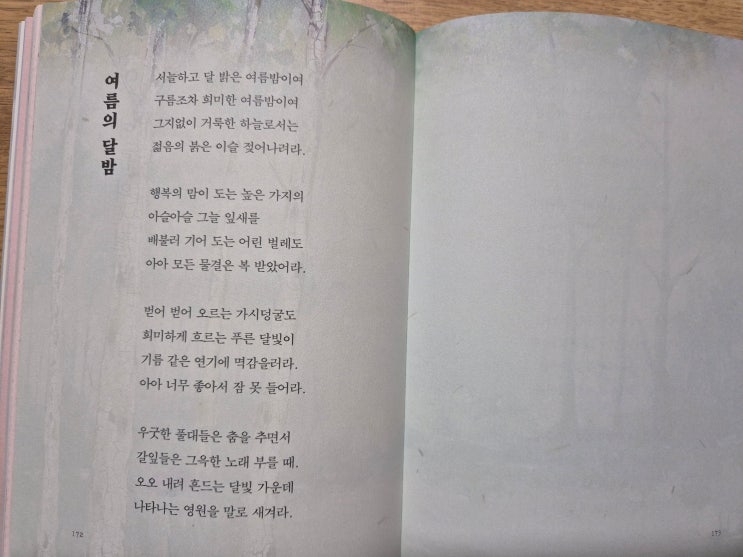 여름의 달밤
서늘하고 달 밝은 여름밤이여
구름조차 희미한 여름밤이여
그지없이 거룩한 하늘로서는
젊음의 붉은 이슬 젖어나려라.
행복의 맘이 도는 높은 가지의
아슬아슬 그늘 잎새를
배불러 기어 도는 어린 벌레도
아아 모든 물결은 복 받았어라.
벋어 벋어 오르는 가시덩굴도
희미하게 흐르는 푸른 달빛이
기름 같은 연기에 멱감을러라.
아아 너무 좋아서 잠 못 들어라.
우굿한 풀대들은 춤을 추면서
갈잎들은 그윽한 노래 부를 때.
오오 내려 흔드는 달빛 가운데
나타나는 영원을 말로 새겨라.
172
173